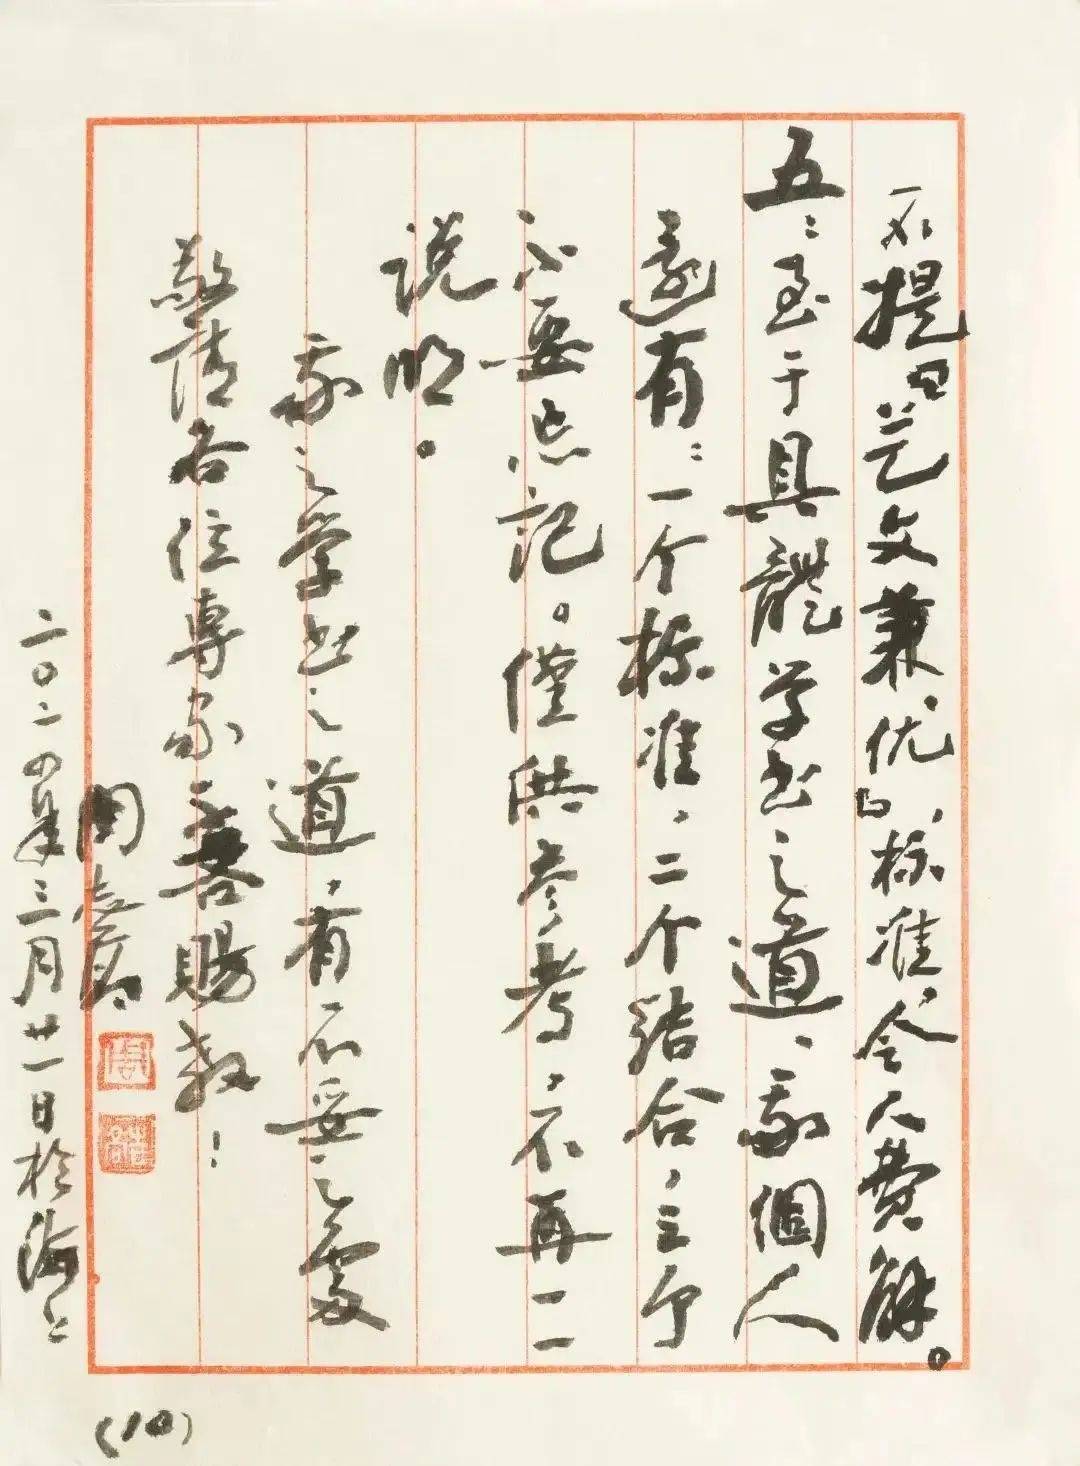 不提「艺文兼优」标准，令人费解。
五：至于具體学书之道、我個人
还有：一个标准，二个结合，三个
不要忘记。僅供参考，不再一一
说明。
我之学书之道，有不妥之處
敬请各位專家吝赐教！
周志高
二〇二四年三月廿一日於海上
(10)